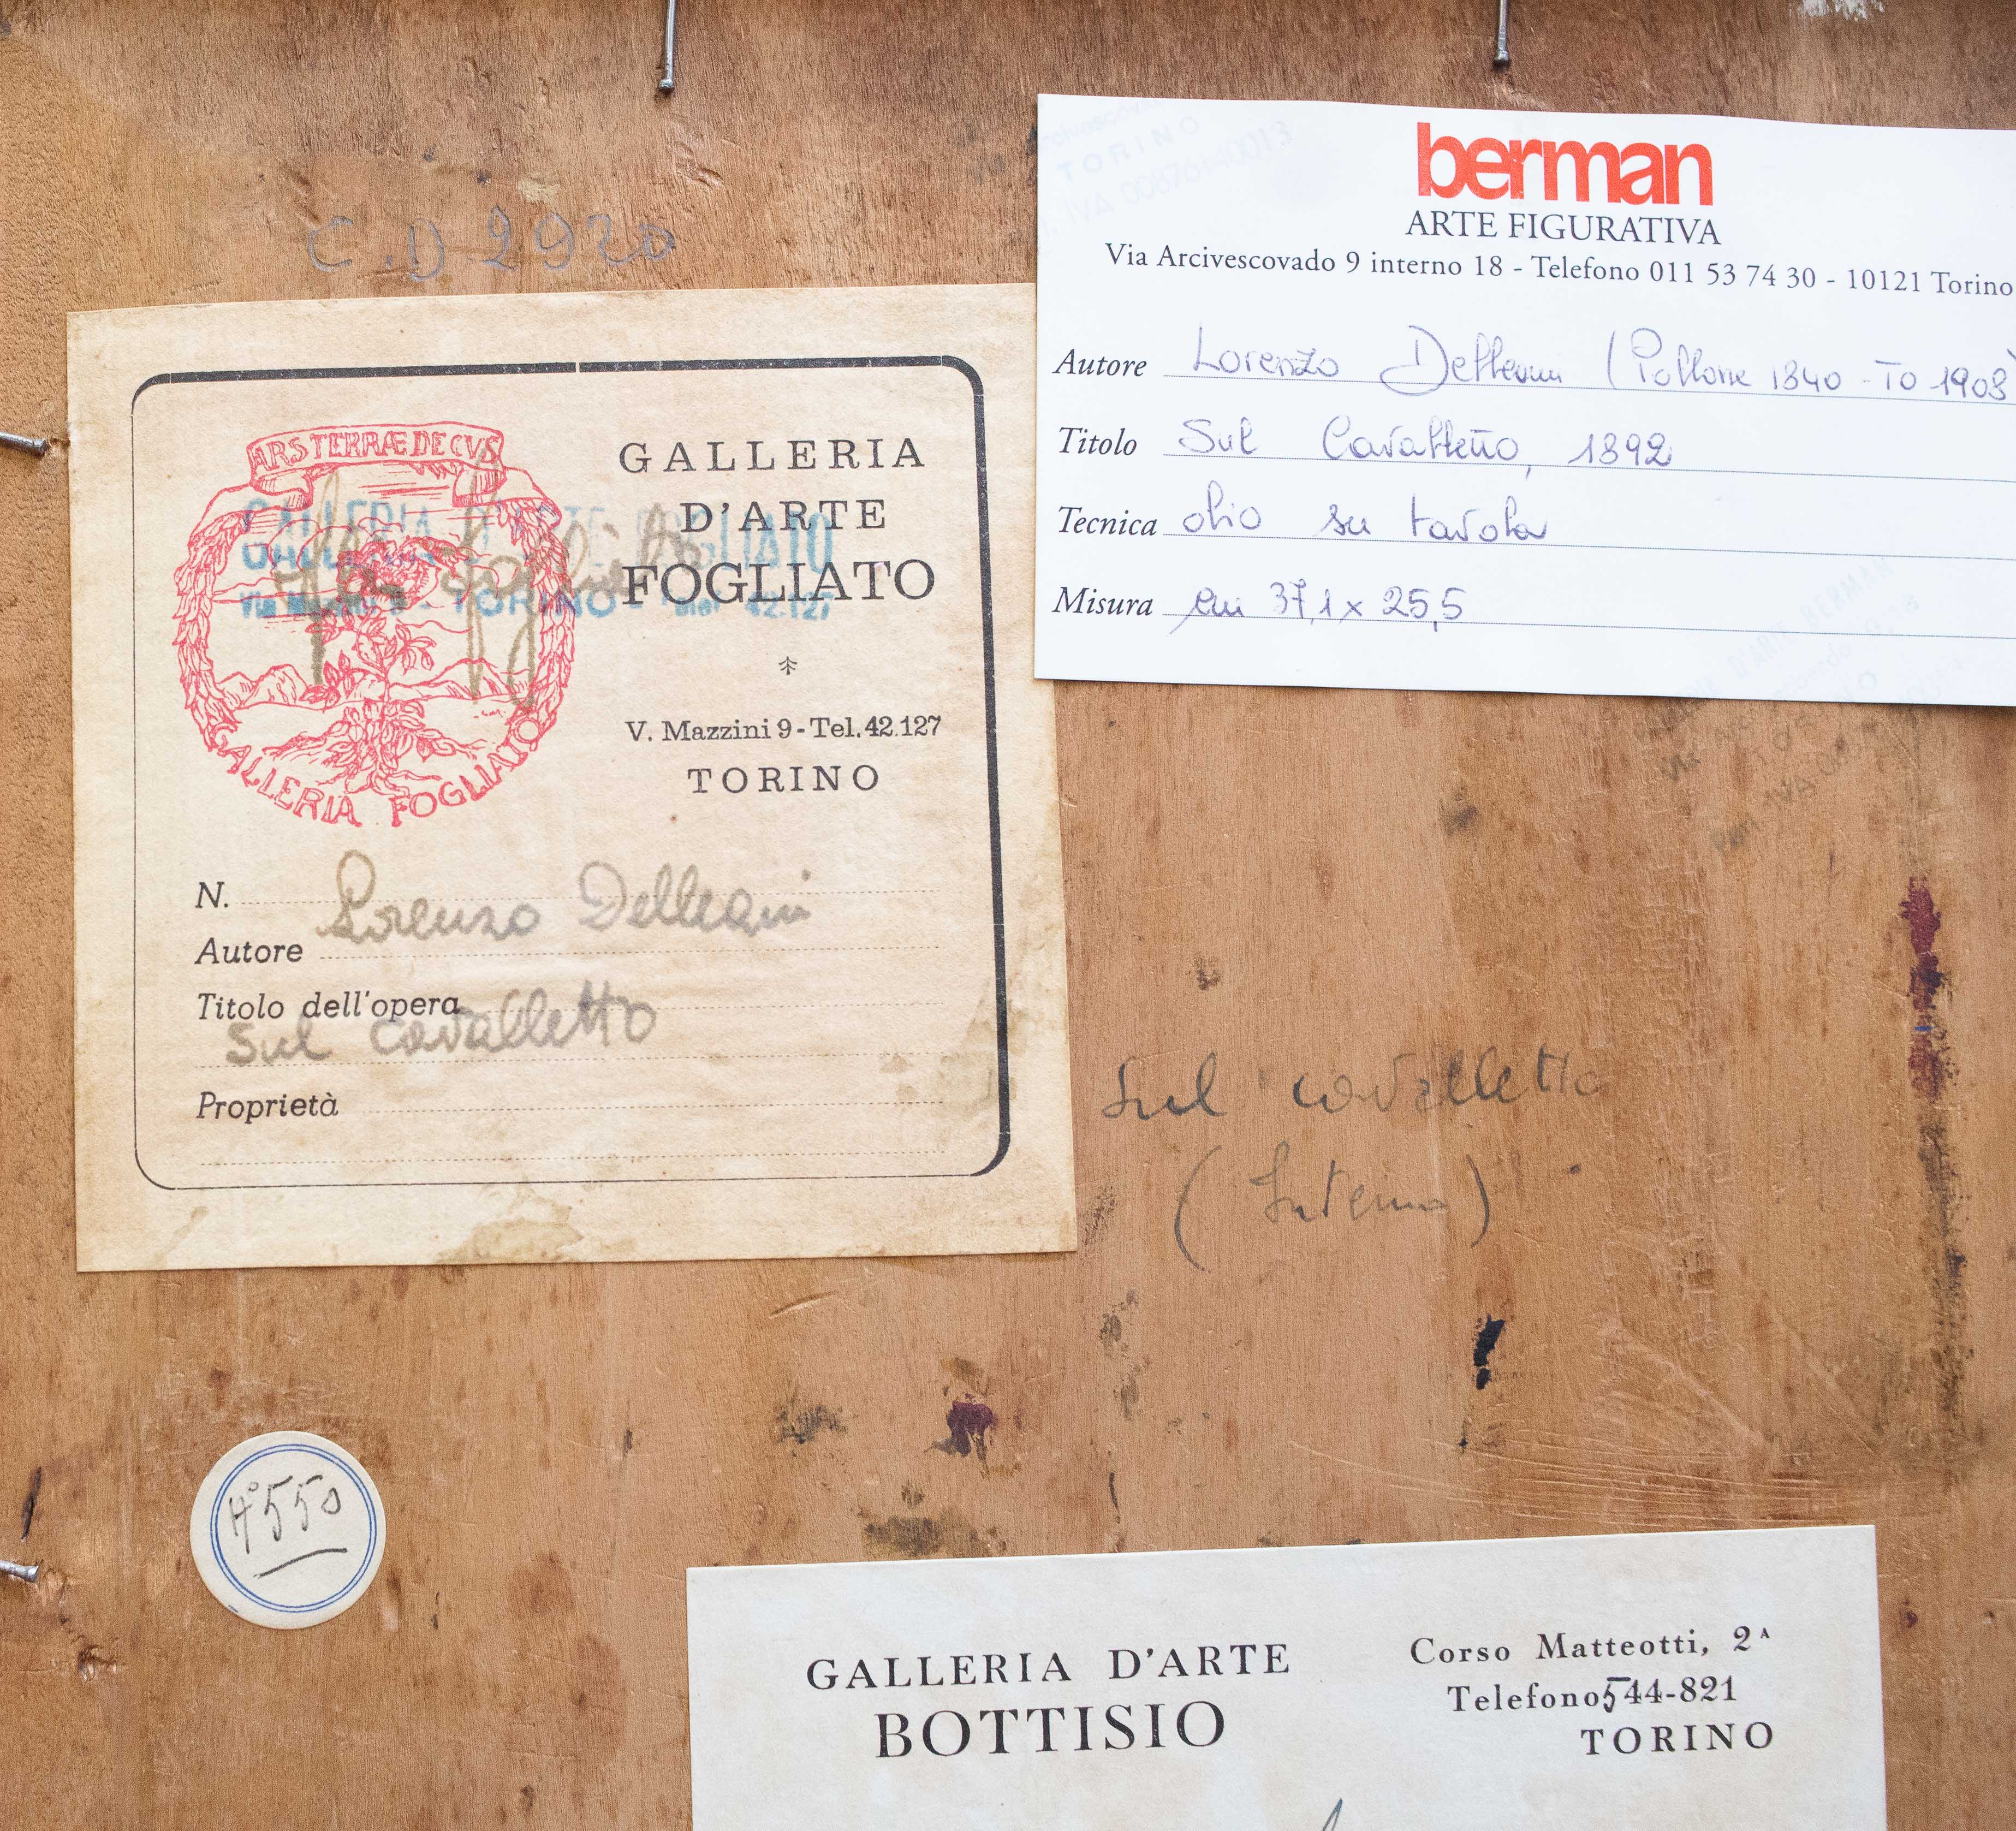 C.D 2920
ARS TERRÆ DECVS
GALLERIA FOGLIATO
GALLERIA D'ARTE FOGLIATO
TORINO - 42.127
GALLERIA
D'ARTE
FOGLIATO
V. Mazzini 9 - Tel. 42.127
TORINO
N.
Lorenzo Delleani
Autore
Titolo dell'opera
Sul cavalletto
Proprietà
TORINO
IVA
berman
ARTE FIGURATIVA
Via Arcivescovado 9 interno 18 - Telefono 011 53 74 30 - 10121 Torino
Autore Lorenzo Delleani (Pollone 1840 - To 1908)
Titolo Sul Cavalletto, 1892
Tecnica olio su tavola
Misura cm 37,1 x 25,5
D'ARTE BERMAN
Sul cavalletto
(Interno)
4°550
GALLERIA D'ARTE
BOTTISIO
Corso Matteotti, 2A
Telefono 544-821
TORINO